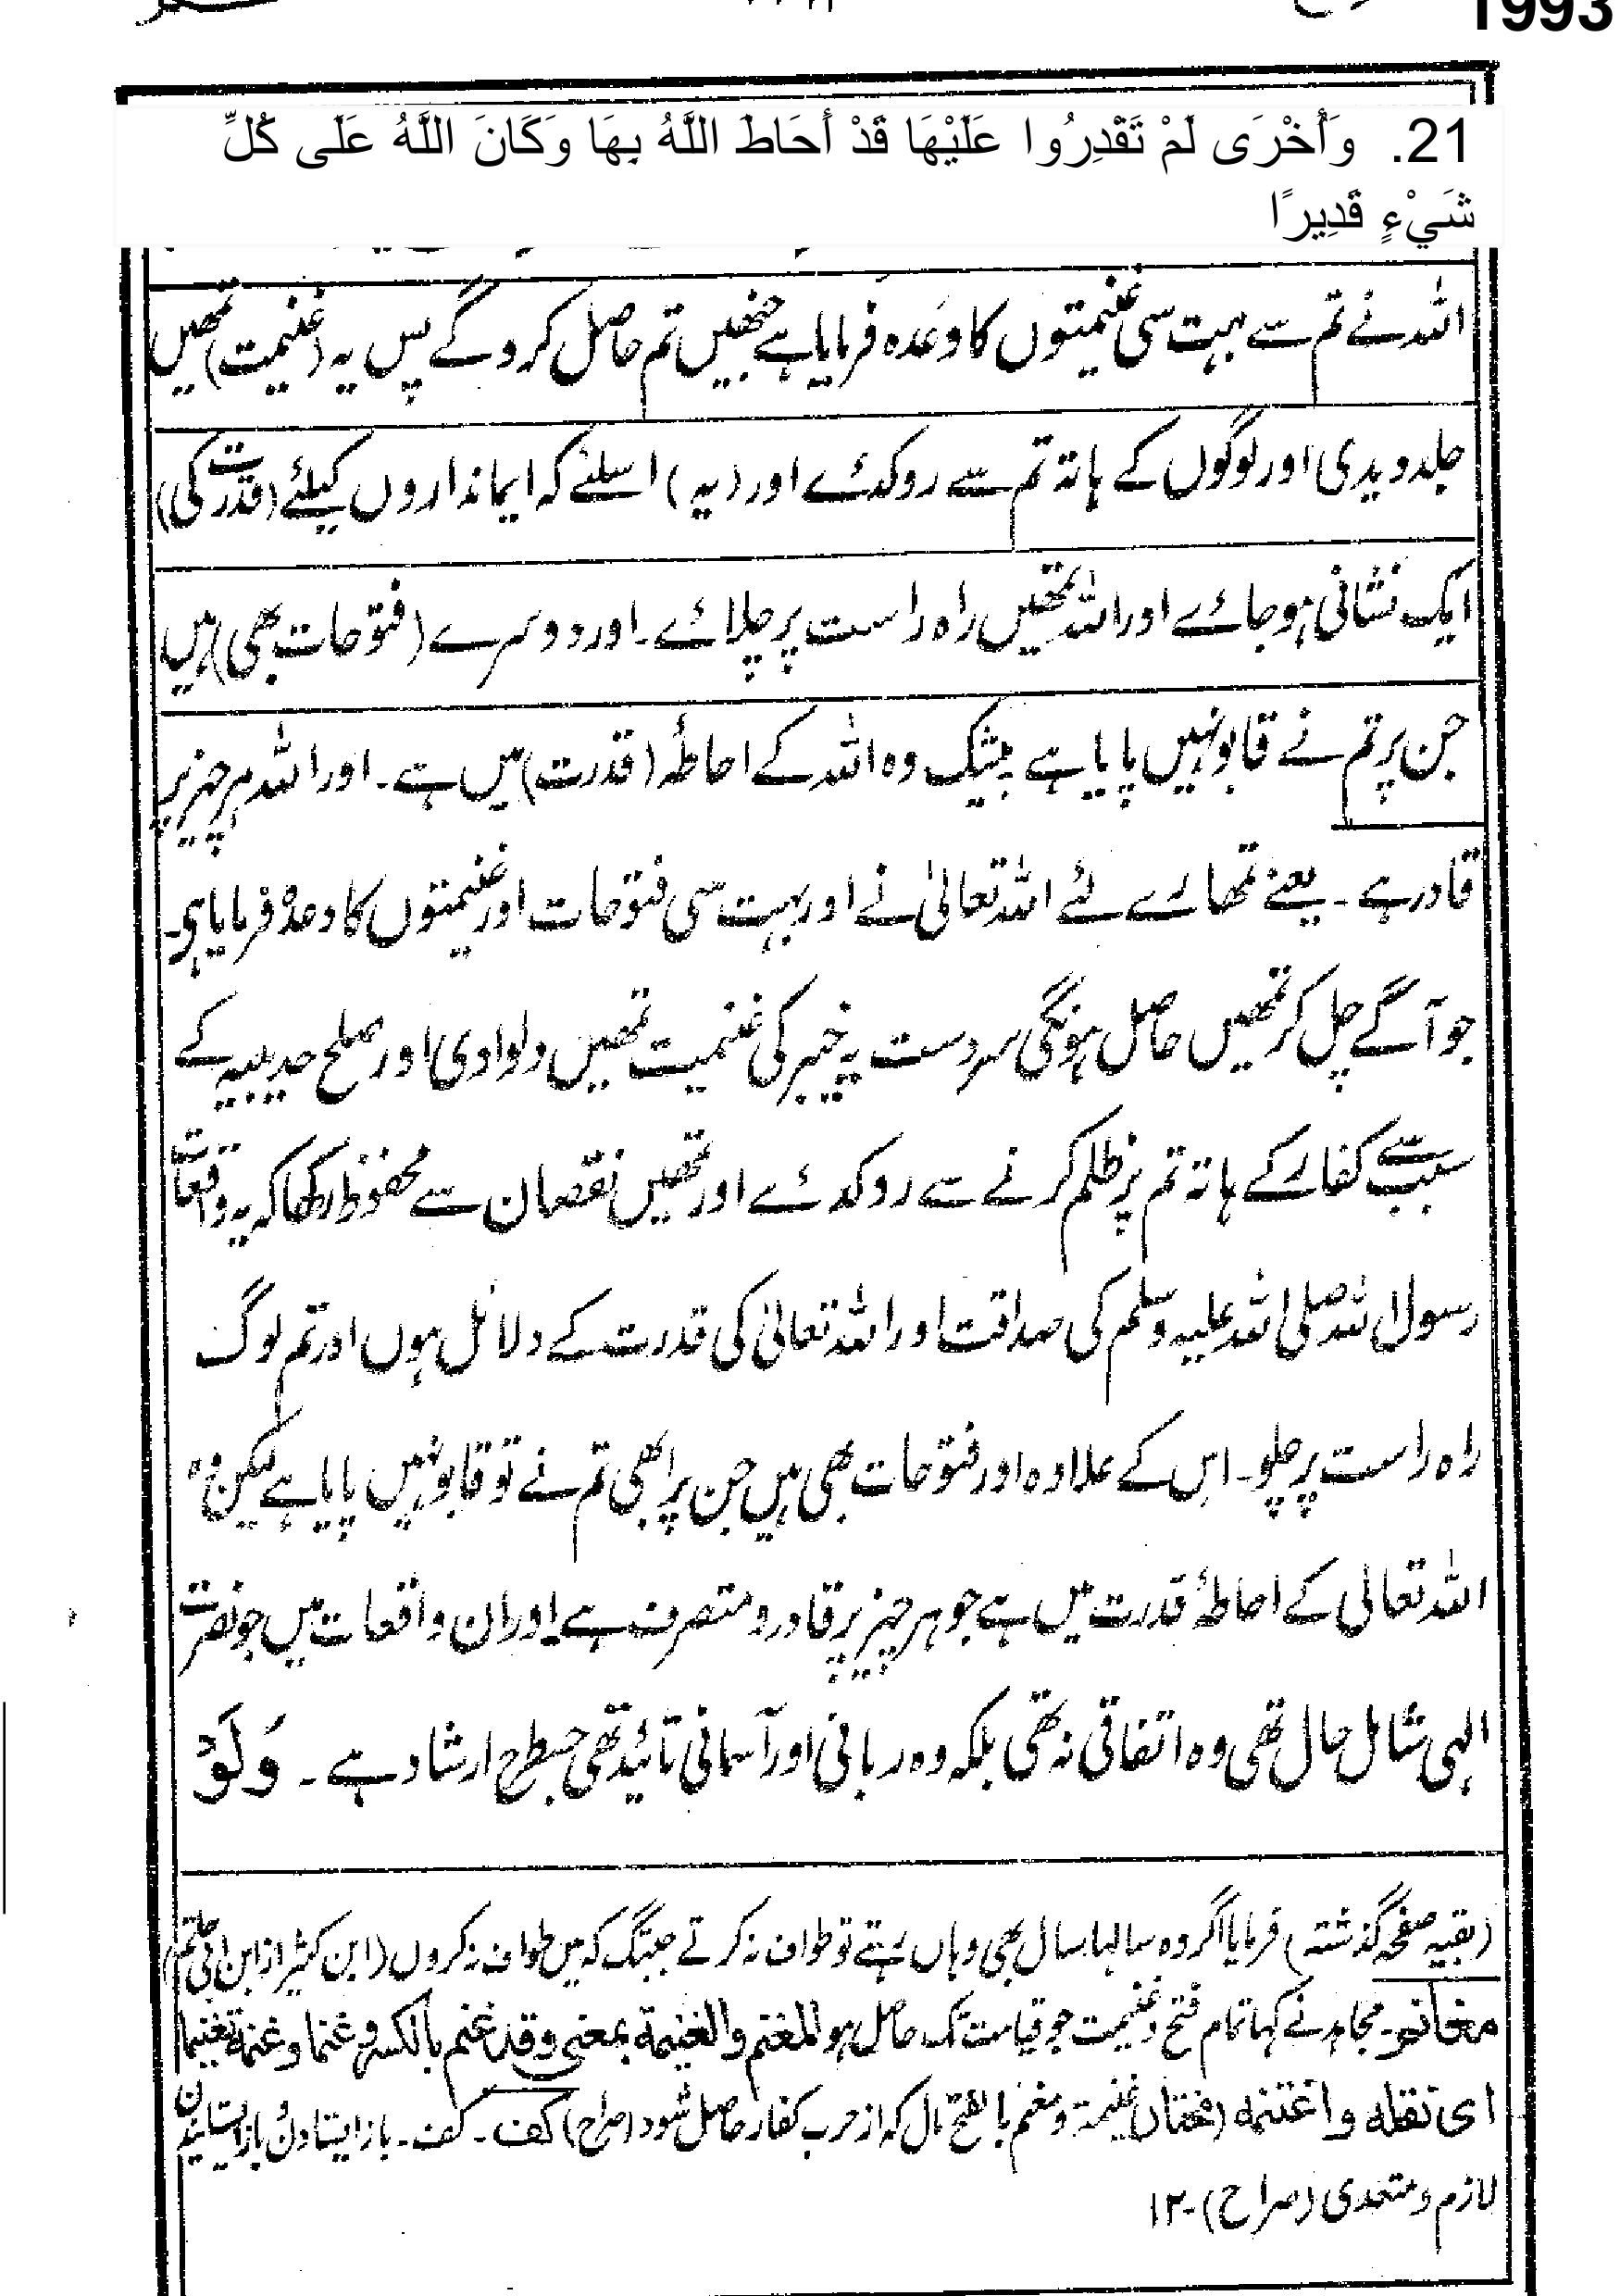 1993
21. وَأُخْرَى لَمْ تَقْدِرُوا عَلَيْهَا قَدْ أَحَاطَ اللَّهُ بِهَا وَكَانَ اللَّهُ عَلَى كُلِّ
شَيْءٍ قَدِيرًا
اللہ نے تم سے بہت سی غنیمتوں کا وعدہ فرمایا ہے جنھیں تم حاصل کروگے پس یہ (غنیمت) تمھیں
جلد دیدی اور لوگوں کے ہاتہ تم سے روکدئے اور (یہ) اسلئے کہ ایمانداروں کیلئے (قدرت کی)
ایک نشانی ہوجائے اور اللہ تمھیں راہ راست پر چلائے۔ اور دوسرے (فتوحات بھی) ہیں
جن پر تم نے قابو نہیں پایا ہے بیشک وہ اللہ کے احاطۂ (قدرت) میں ہے۔ اور اللہ ہر چیز پر
قادر ہے۔ یعنے تمھارے لئے اللہ تعالیٰ نے اور بہت سی فتوحات اور غنیمتوں کا وعدہ فرمایا ہی۔
جو آگے چل کر تمھیں حاصل ہونگی سردست یہ خیبر کی غنیمت تمھیں دلوادی اور صلح حدیبیہ کے
سبب سے کفار کے ہاتہ تم پر ظلم کرنے سے روکدئے اور تمھیں نقصان سے محفوظ رکھا کہ یہ واقعات
رسول اللہ صلی اللہ علیہ وسلم کی صداقت اور اللہ تعالیٰ کی قدرت کے دلائل ہوں اور تم لوگ
راہ راست پر چلو۔ اس کے علاوہ اور فتوحات بھی ہیں جن پر ابھی تم نے تو قابو نہیں پایا ہے لیکن وہ
اللہ تعالی کے احاطۂ قدرت میں ہے جو ہر چیز پر قادر و متصرف ہے۔ اور ان واقعات میں جو نصرت
الہی شامل حال تھی وہ اتفاقی نہ تھی بلکہ وہ ربانی اور آسمانی تائید تھی جسطرح ارشاد ہے۔ وَلَوْ
(بقیہ صفحہ گذشتہ) فرمایا اگر وہ سالہا سال بھی وہاں رہتے تو طواف نہ کرتے جبتک کہ میں طواف نہ کروں (ابن کثیر از ابن ابی حاتم)
مغانم۔ مجاہد نے کہا تمام فتح و غنیمت جو قیامت تک حاصل ہو المغنم والغنیمة بمعنی وقد غنم بالکسر غنما وغنمه تغنیما
ای نفله واغتنمه غنیمة و مغنم بالفتح مال کہ از حرب کفار حاصل شود (صراح) کف۔ کف۔ باز ایستادن و باز ایستانیدن
لازم و متعدی (صراح)۔ ۱۲